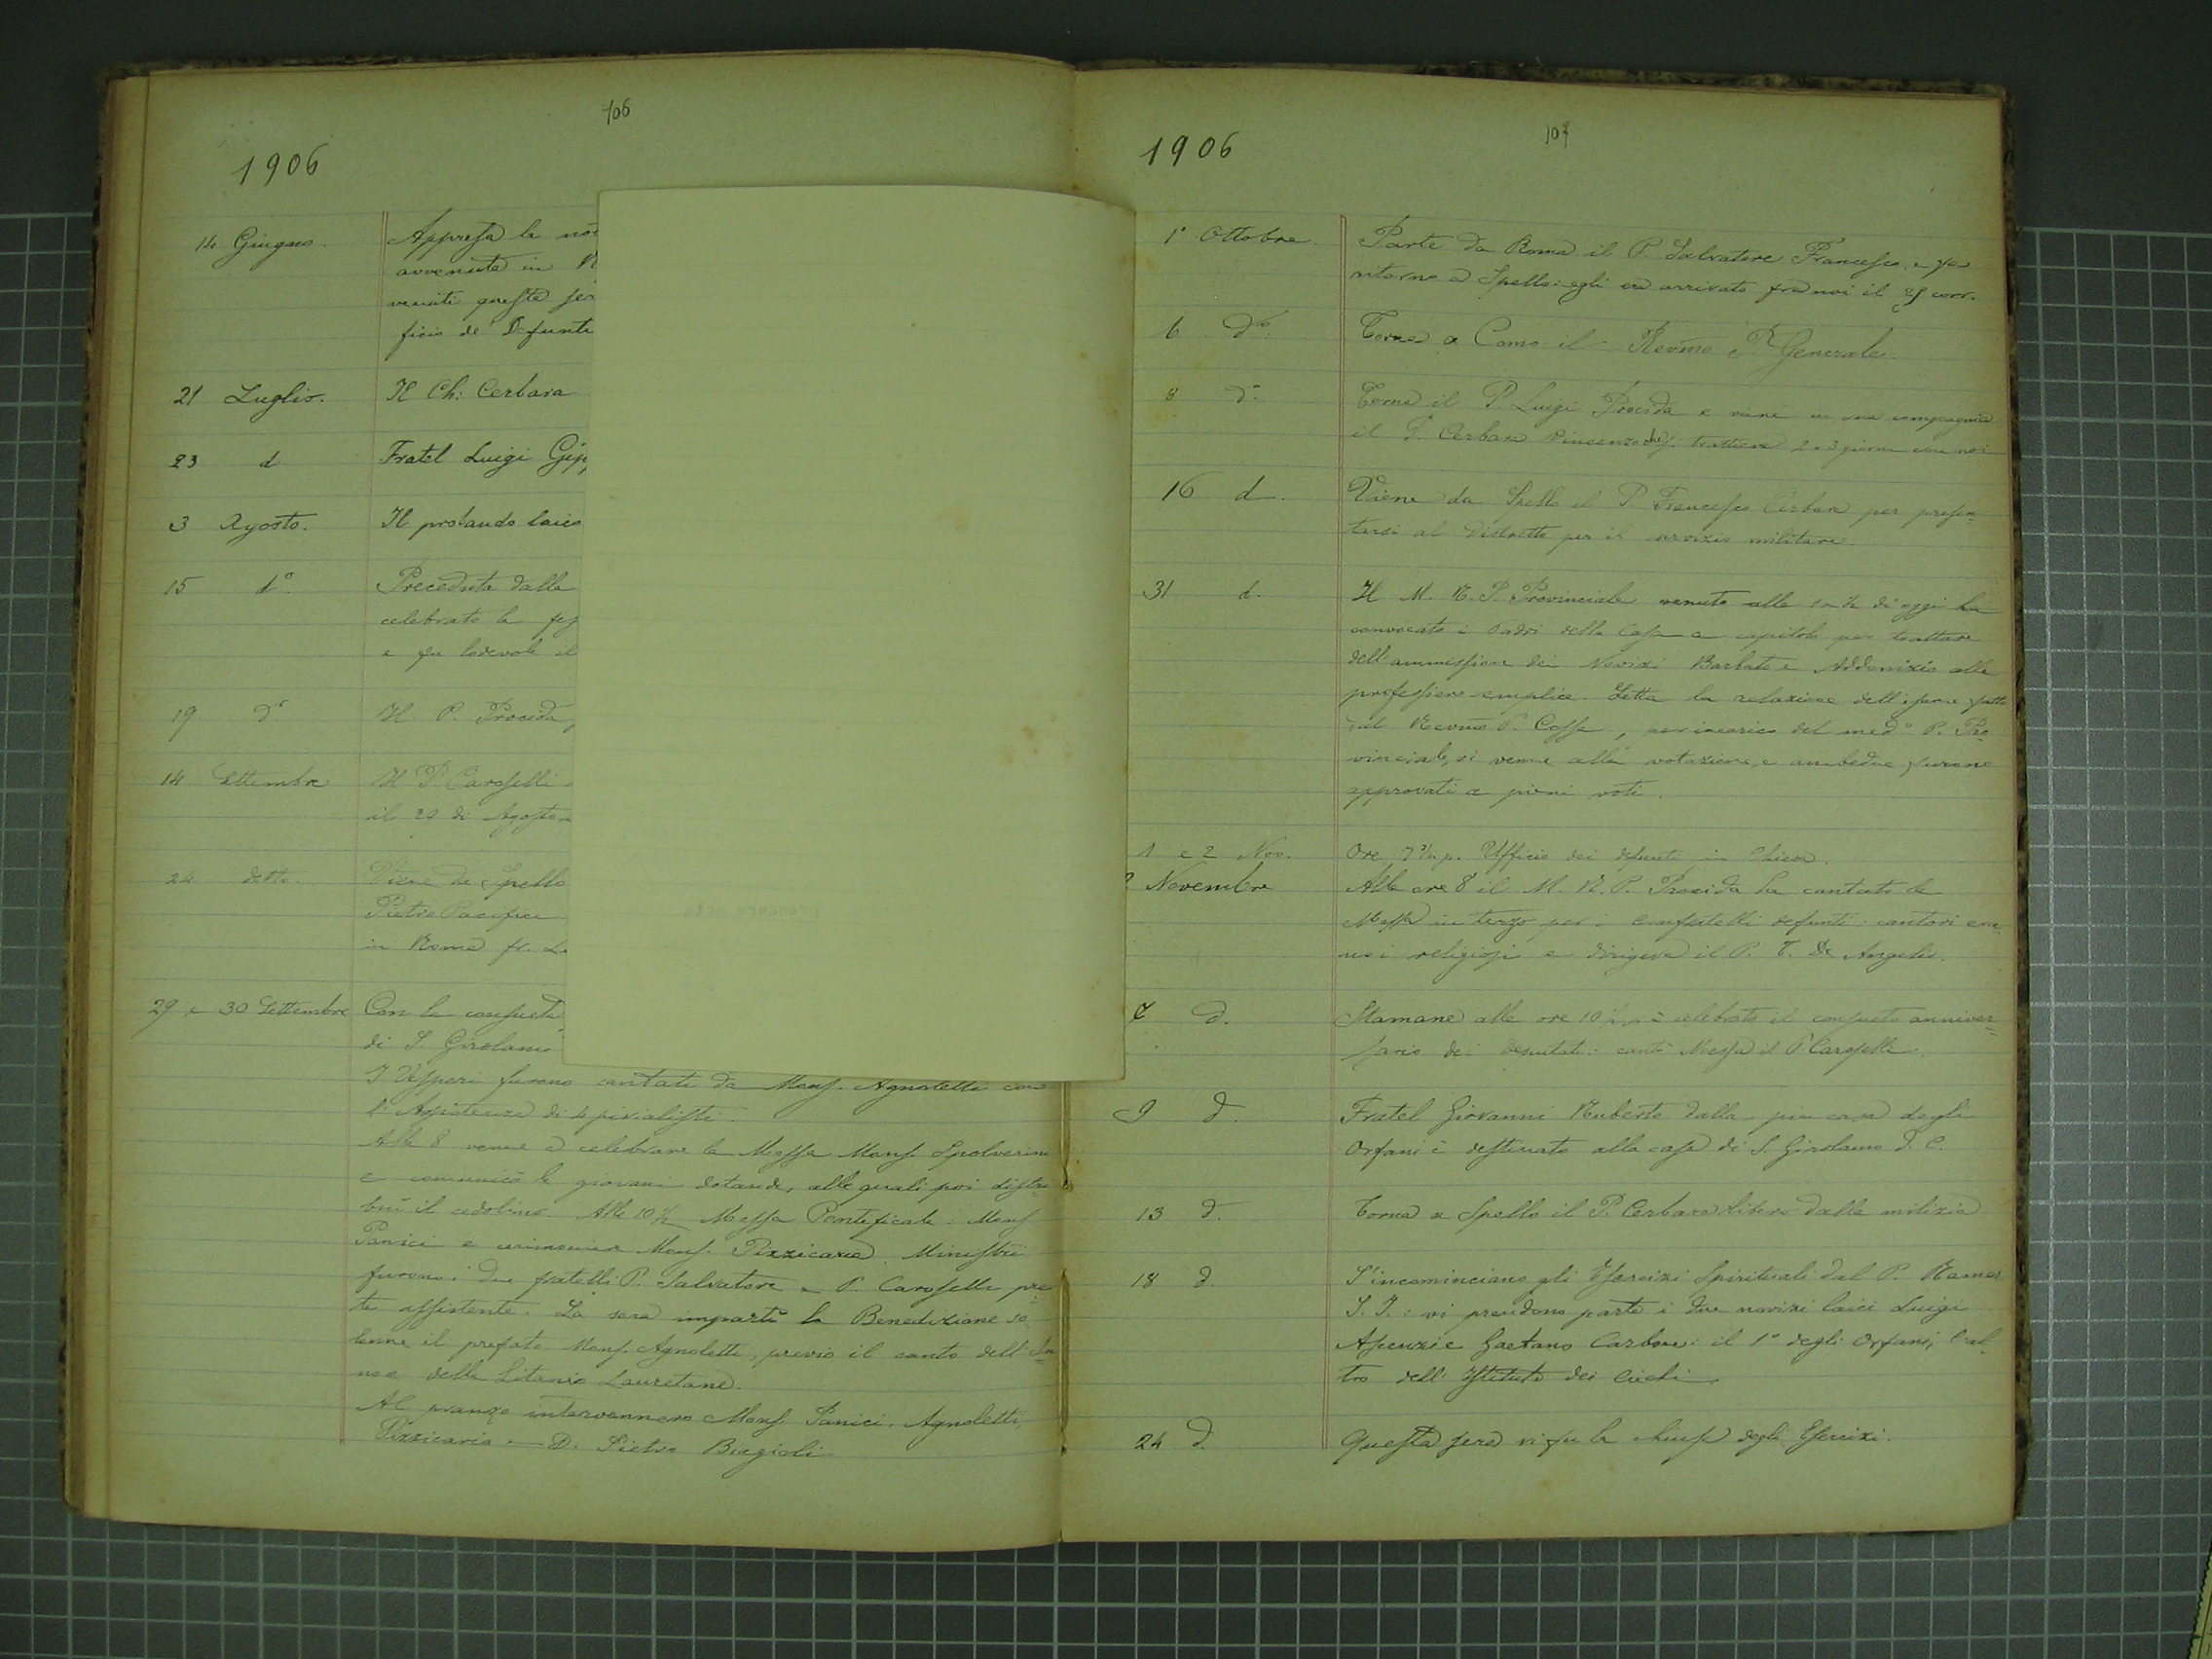 106
1906
14 Giugno. Appresa la
avvenuta in
venuti questa
ficio de' Defunti
21 Luglio. Il Ch: Cerbara
23 d Fratel Luigi
3 Agosto. Il probando laico
15 do. Preceduta dalla
celebrato la
e fu lodevole il
19 do. Il P. Procida
14 Settembre Il P. Caroselli
il 29 di Agosto
24 detto. Viene da Spello
Pietro Pacifici
in Roma fr.
29 e 30 Settembre Con la consueta
di S. Girolamo
I Vesperi furono cantati da Mons. Agnoletti con
l'Assistenza di 4 pivialisti.
Alle 8 venne a celebrare la Messa Mons. Spolverini
e comunicò le giovani dotande, alle quali poi distri
buì il cedolino. Alle 10 1/2 Messa Pontificale: Mons
Panici e Mons. Pizzicaria. Ministri
furono i due fratelli P. Salvatore e P. Caroselli pre
te assistente. La sera impartì la Benedizione so
lenne il prefato Mons. Agnoletti, previo il canto dell'In
no e delle Litanie Lauretane.
Al pranzo intervennero Mons. Panici, Agnoletti,
Pizzicaria e D. Pietro Biagioli
107
1906
1° Ottobre. Parte da Roma il P. Salvatore Francesco, e fa
ritorno a Spello: egli era arrivato fra noi il corr.
6 do. Torna a Como il Revmo P. Generale.
8 do. Torna il P. Luigi Procida e viene in sua compagnia
il P. Cerbara Vincenzo che si trattiene 2 o 3 giorni con noi
16 d. Viene da Spello il P. Francesco Cerbara per presen=
tarsi al Distretto per il servizio militare.
31 d. Il M. R. P. Provinciale venuto alle 10 1/2 di oggi ha
convocato i Padri della Casa a capitolo per trattare
dell'ammissione dei Novizi Barbato e Addonizio alla
professione semplice. Letta la relazione dell'esame fatto
dal Revmo P. Cossa, per incarico del medo P. Pro
vinciale, si venne alla votazione, e ambedue furono
approvati a pieni voti.
1 e 2 Nov. Ore p. Ufficio dei defunti in Chiesa.
2 Novembre Alle ore 8 il M. R. P. Procida ha cantato la
Messa in terzo per i Confratelli defunti: cantori era=
no i religiosi e dirigeva il P. T. De Angelis.
7 d. Stamane alle ore 10 1/2 si è celebrato il consueto anniver=
sario dei Deputati: cantò Messa il P. Caroselli.
9 d. Fratel Giovanni Ruberto dalla pia casa degli
Orfani è destinato alla casa di S. Girolamo d. C.
13 d. Torna a Spello il P. Cerbara libero dalla milizia
18 d. S'incominciano gli Esercizi Spirituali dal P.
S. J.: vi prendono parte i due novizi laici Luigi
e Gaetano Carbone: il 1° degli Orfani, l'al=
tro dell'Istituto dei Ciechi
24 d. Questa sera vi fu la chiusa degli Esercizi.